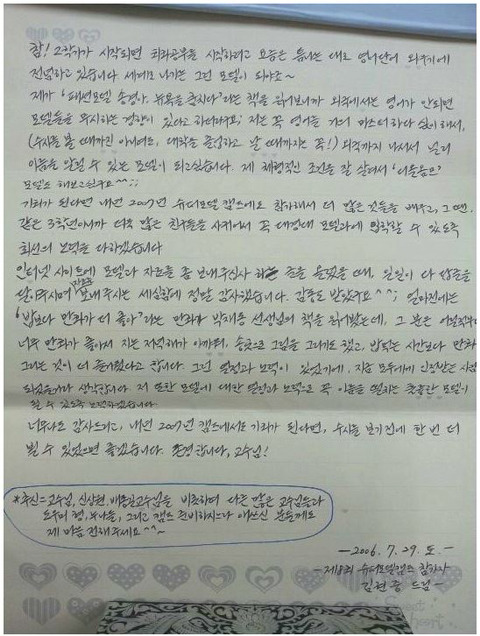 참! 2학기가 시작되면 회화공부를 시작하려고 요즘은 틈나는 대로 영어단어 외우기에
전념하고 있습니다. 세계로 나가는 그런 모델이 되야죠~
제가 '패션모델 송경아, 뉴욕을 훔치다'라는 책을 읽어보니까 외국에서는 영어가 안되면
모델들을 무시하는 경향이 있다고 하더라구요; 저는 꼭 영어를 거의 마스터하다 싶이 해서,
(수시를 볼 때까진 아니여도, 대학을 졸업하고 날 때까지는 꼭!) 외국까지 나서서 널리
이름을 알릴 수 있는 모델이 되고싶습니다. 제 체형적인 조건을 잘 살려서
모델도 해보고싶구요^^;;
기회가 된다면 내년 2007년 슈퍼모델 캠프에도 참가해서 더 많은 것들을 배우고, 그땐
같은 3학년이니까 더욱 많은 친구들을 사귀어서 꼭 대경대 모델과에 입학할 수 있도록
최선의 노력을 다하겠습니다
인터넷 사이트에 모델과 자료를 좀 보내주십사 하는 글을 올렸을 때, 일일이 다 답글을
달아주시며 보내주시는 세심함에 정말 감사했습니다. 감동도 받았구요^^; 얼마전에는
'밥보다 만화가 더 좋아'라는 만화가 박재동 선생님의 책을 읽어봤는데, 그 분은 어렸을적부터
너무 만화가 좋아서 지는 저녁해가 아까워, 송곳으로 그림을 그리기도 했고, 밥먹는 시간보다 만화
그리는 것이 더 즐거웠다고 합니다. 그런 열정과 노력이 있었기에, 지금 모두에게 인정받는 사람이
되었을거라 생각합니다. 저 또한 모델에 대한 열정과 노력으로 꼭 이름을 떨치는 훌륭한 모델이
될 수 있도록 노력하겠습니다.
너무나도 감사드리고, 내년 2007년 캠프에서도 기회가 된다면, 수시를 보기전에 한 번 더
뵐 수 있었으면 좋겠습니다. 존경합니다, 교수님!
*추신 교수님, 신상원, 교수님을 비롯하여 다른 많은 교수님들과
도우미 형, 누나들, 그리고 캠프 준비하시느라 애쓰신 분들께도
제 마음 전해주세요^^~
- 2006. 7. 29. 토. -
- 제1회 슈퍼모델캠프 참가자
김현중 드림 -